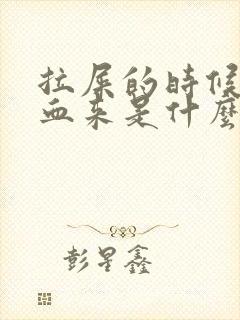 拉屎的时候
血来是什麼
彭星鑫